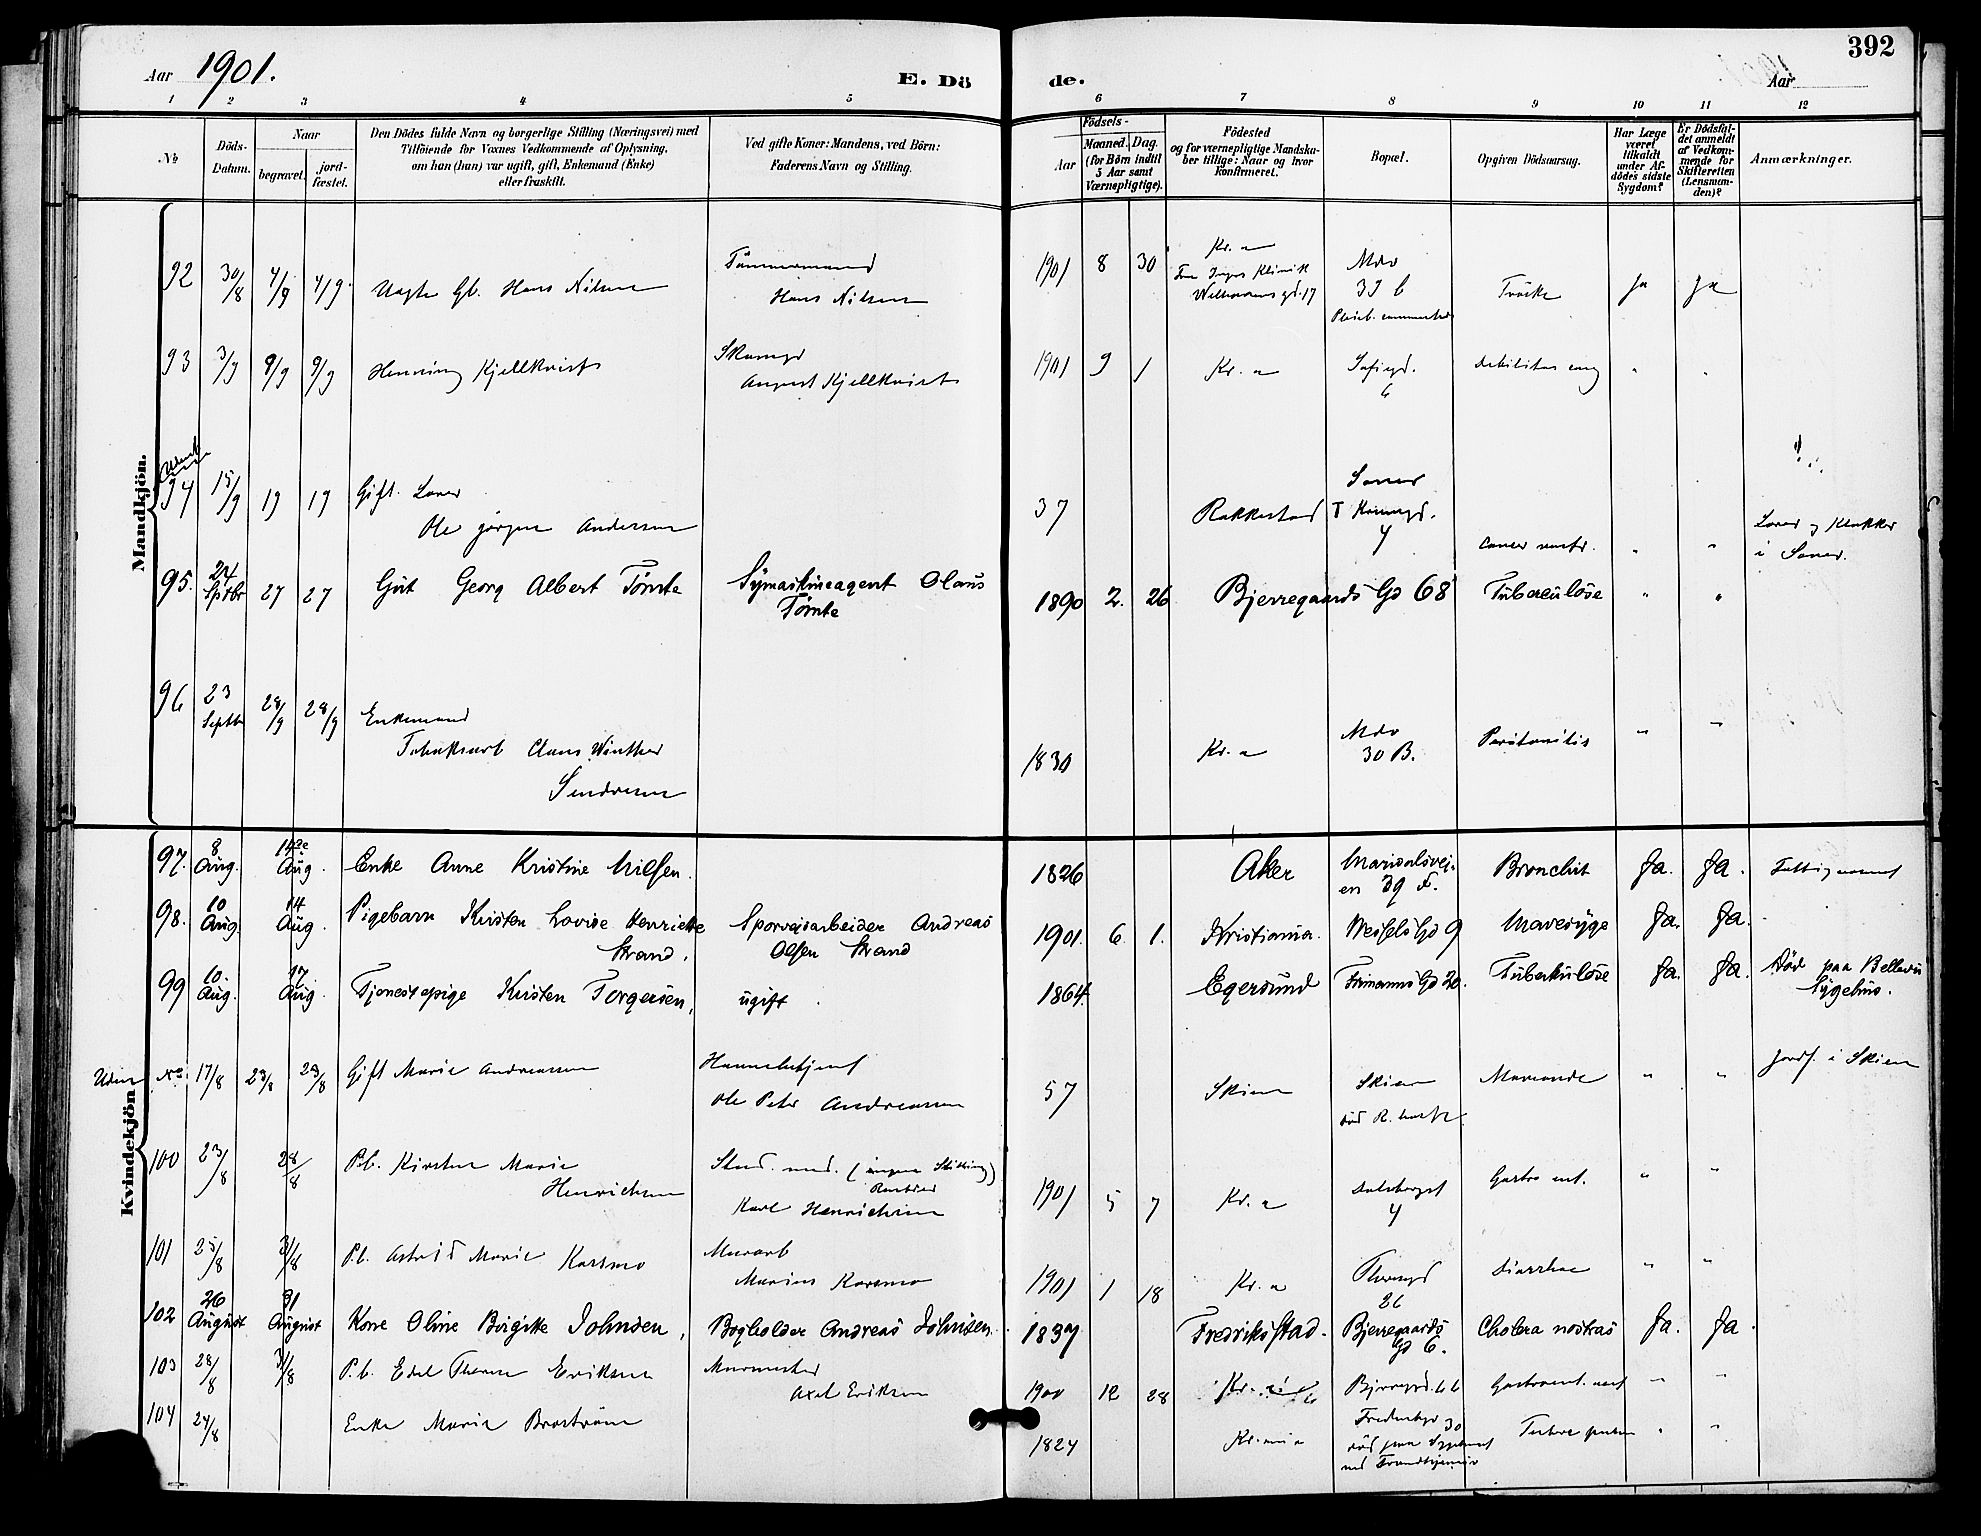 392
Aar 1901.
E. Dö de.
Aar
1 2 3 4 5 6 7 8 9 10 11 12
No
Döds-
Datum.
Naar
begravet.
jord-
fæstet.
Den Dödes fulde Navn og borgerlige Stilling (Næringsvei) med
Tilföiende for Voxnes Vedkommende af Oplysning,
om hun (han) var ugift, gift, Enkemand (Enke)
eller fraskilt.
Ved gifte Koner: Mandens, ved Börn:
Faderens Navn og Stilling.
Födsels-
Aar
Maaned. Dag.
(for Börn indtil
5 Aar samt
Værnepligtige).
Födested
og for værnepligtige Mandska-
ber tillige: Naar og hvor
konfirmeret.
Bopæl.
Opgiven Dödsaarsag.
Har Læge
været
tilkaldt
under Af-
dödes sidste
Sygdom?
Er Dödsfal-
det anmeldt
af Vedkom-
mende for
Skifteretten
(Lensman-
den)?
Anmærkninger.
Mandkjön.
92 30/8 4/9 4/9 Uægte Gb. Hans Nilsen
Tömmermand
Hans Nilsen
1901 8 30 Kr.a
Klinik
17
30 b
Ja Ja
93 3/9 9/9 9/9 Henning Kjellkvist
Skomgr
August Kjellkvist
1901 9 1 Kr.a Sofiegd.
6
Debilitas cong " "
94 15/9 19 19 Gift.
Ole Jörgen Andersen
37 Rakkestad
4
Cancer ventr. " "
i
95. 24 Sptbr 27 27 Gut Georg Albert Tömte Symaskineagent Olaus
Tömte
1890 2. 26 Bjerregaards Gd 68 Tuberculose " "
96 23 Septbr 28/9 28/9 Enkemand
Tobaksarb Claus Winther
Sendresen
1830 Kr.a
30 B.
Peritonitis " "
Kvindekjön
97. 8 Aug. 14de Aug. Enke Anne Kristine Nilsen.
1826 Aker Maridalsvej-
en 39 F.
Bronchit Ja. Ja.
98. 10 Aug 14 Aug. Pigebarn Kirsten Lovise Henriette
Strand.
Sporveisarbeider Andreas
Olsen Strand
1901. 6. 1. Kristiania. Wessels Gd 9 Mavesyge Ja. Ja.
99 10. Aug. 17 Aug. Tjenestepige Kirsten Torgersen, ugift
1864. Egersund Gd 20. Tuberkulose Ja. Ja. Död paa Bellevu
Sygehus.
No 17/8 23/8 23/8 Gift Marie Andreassen
Ole Peter Andreassen
57 Skien Skien
död R. hosp.
" " Jordf. i Skien
100 23/8 28/8 P.b. Kirsten Marie
Henrichsen
Stud. med. (ingen Stilling)
Karl Henrichsen
1901 5 7 Kr.a Dalsberget
4
Gastro ent. " "
101 25/8 31/8 P.b. Astrid Marie Karsmo
Murarb
Marius Karsmo
1901 1 18 Kr.a
26
Diarrhoe " "
102 26 August 31 August Kone Oline Birgitte Johnsen, Bogholder Andreas Johnsen.
1837 Fredriksstad. Bjerregaards
Gd 6.
Cholera nostras Ja. Ja.
103 28/8 31/8 P.b. Edel Therese Eriksen
Murmester
Axel Eriksen
1900 12 28 Kr.a " "
104 24/8 Enke Marie Broström
1824 Kr.ania 30
död paa Sygehuset
" "